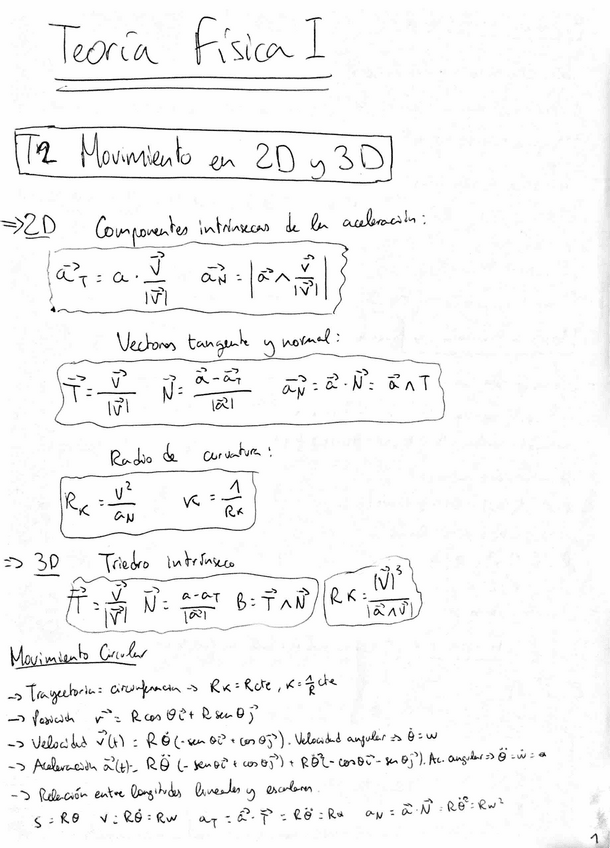 Teoría Física I
T2 Movimiento en 2D y 3D
=> 2D Componentes intrínsecas de la aceleración:
a⃗_T = a · v⃗/|v⃗|   a⃗_N = |a⃗ ∧ v⃗/|v⃗||
Vectores tangente y normal:
T⃗ = v⃗/|v⃗|   N⃗ = (a⃗ - a⃗_T)/|a⃗|   a⃗_N = a⃗ · N⃗ = a⃗ ∧ T
Radio de curvatura:
R_K = v²/a_N   K = 1/R_K
=> 3D Triedro intrínseco
T⃗ = v⃗/|v⃗|   N⃗ = (a - a_T)/|a⃗|   B = T⃗ ∧ N⃗   RK = |v⃗|³/|a⃗ ∧ v⃗|
Movimiento Circular
-> Trayectoria = circunferencia -> RK = R cte, K = 1/R cte
-> Posición r⃗ = R cos θ i⃗ + R sen θ j⃗
-> Velocidad v⃗(t) = R θ̇ (-sen θ i⃗ + cos θ j⃗). Velocidad angular => θ̇ = w
-> Aceleración a⃗(t) = R θ̈ (-sen θ i⃗ + cos θ j⃗) + R θ̇² (-cos θ i⃗ - sen θ j⃗). Ac. angular => θ̈ = ẇ = α
-> Relación entre longitudes lineales y escalares.
S = Rθ   v = Rθ̇ = Rw   a_T = a⃗ · T⃗ = Rθ̈ = Rα   a_N = a⃗ · N⃗ = Rθ̇² = Rw²
1